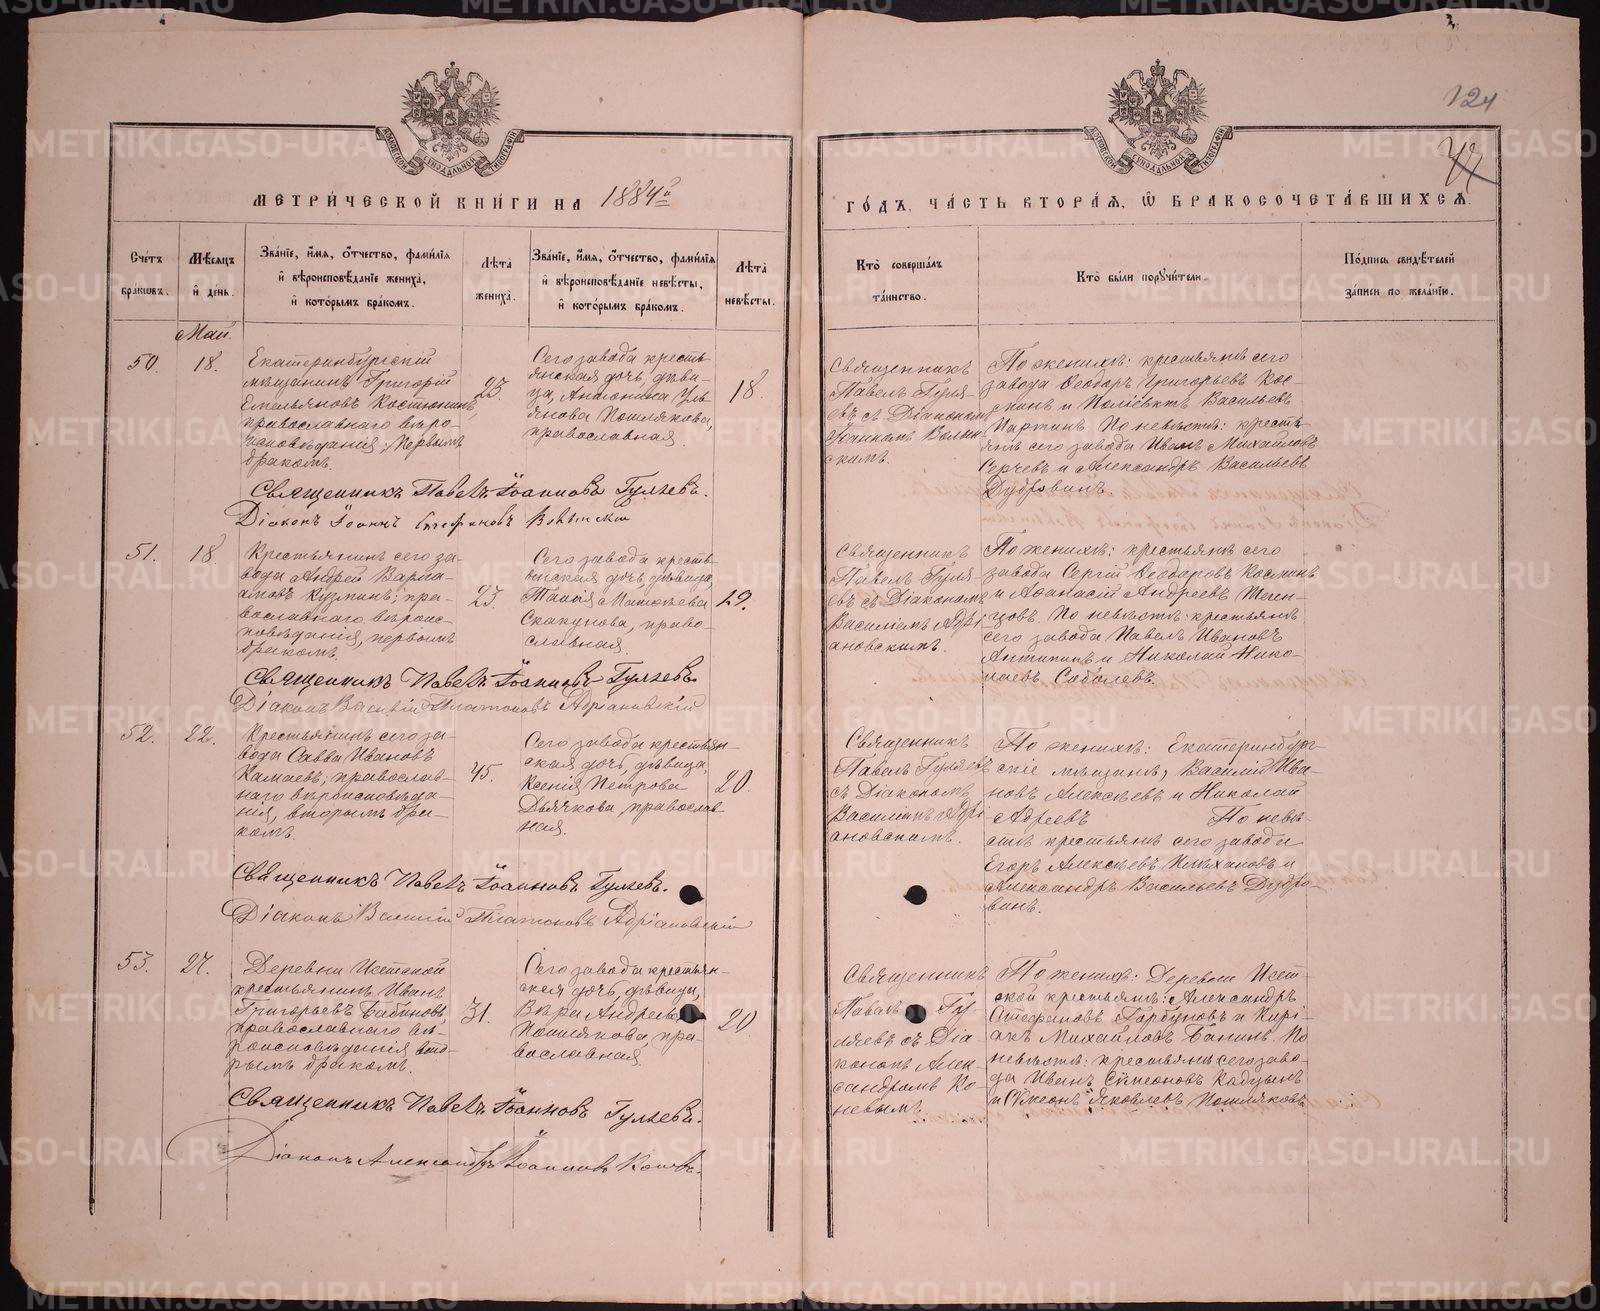 124
МЕТРИЧЕСКОЙ КНИГИ НА 1884й
ГОДЪ, ЧАСТЬ ВТОРАЯ, Ѡ БРАКОСОЧЕТАВШИХСЯ.
Счетъ
браковъ.
Мѣсяцъ
и день.
Званіе, имя, отчество, фамилія
и вѣроисповѣданіе жениха,
и которымъ бракомъ.
Лѣта
жениха.
Званіе, имя, отчество, фамилія
и вѣроисповѣданіе невѣсты,
и которымъ бракомъ.
Лѣта
невѣсты.
Кто совершалъ
таинство.
Кто были поручители.
Подпись свидѣтелей
записи по желанію.
Май.
50.
18.
Екатеринбургскій
мѣщанинъ Григорій
Емельяновъ Костюнинъ,
православнаго вѣро-
исповѣданія; первымъ
бракомъ.
23.
Сего завода кресть-
янская дочь, дѣви-
ца, Антонина Уль-
янова Пошлякова,
православная.
18.
Священникъ
Павелъ Гуля-
евъ съ Діакономъ
скимъ.
По женихѣ: крестьянѣ сего
завода Ѳеодоръ Григорьевъ Кос-
и Поліевктъ Васильевъ
По невѣстѣ: кресть-
янѣ сего завода Иванъ Михайловъ
и Александръ Васильевъ
Дубровинъ.
Священникъ Павелъ Іоанновъ Гуляевъ.
Діаконъ Іоаннъ Стефановъ
51.
18.
Крестьянинъ сего за-
вода Андрей Варла-
амовъ Кузминъ; пра-
вославнаго вѣроис-
повѣданія, первымъ
бракомъ.
Сего завода кресть-
янская дочь, дѣвица,
Таисія
Скакунова, право-
славная.
19.
Священникъ
Павелъ Гуля-
евъ съ Діакономъ
Василіемъ Адрі-
ановскимъ.
По женихѣ: крестьянѣ сего
завода Сергій Ѳеодоровъ Косминъ
и Аѳанасій Андреевъ
По невѣстѣ: крестьянѣ
сего завода Павелъ Ивановъ
Антипинъ и Николай Нико-
лаевъ Соболевъ.
Священникъ Павелъ Іоанновъ Гуляевъ.
Діаконъ Василій Платоновъ Адріановскій
52.
22.
Крестьянинъ сего за-
вода Савва Ивановъ
Камаевъ; православ-
наго вѣроисповѣда-
нія, вторымъ бра-
комъ.
45.
Сего завода крестьян-
ская дочь, дѣвица,
Ксенія Петрова
Дьячкова, православ-
ная.
20.
Священникъ
Павелъ Гуляевъ
съ Діакономъ
Василіемъ Адрі-
ановскимъ.
По женихѣ: Екатеринбург-
скіе мѣщанѣ, Василій Ива-
новъ Алексѣевъ и Николай
Адреевъ По невѣ-
стѣ крестьянѣ сего завода
Егоръ Алексѣевъ и
Александръ Васильевъ Дубро-
винъ.
Священникъ Павелъ Іоанновъ Гуляевъ.
Діаконъ Василій Платоновъ Адріановскій
53.
27.
Деревни Истокой
крестьянинъ Иванъ
Григорьевъ Бабиновъ,
православнаго вѣ-
роисповѣданія вто-
рымъ бракомъ.
31.
Сего завода крестьян-
ская дочь, дѣвица,
Вѣра Андреева
Пошлякова, пра-
вославная.
20
Священникъ
Павелъ Гу-
ляевъ съ Діа-
кономъ Алек-
сандромъ Ко-
невымъ
По женихѣ: Деревни Исет-
ской крестьянѣ: Александръ
Стефановъ Горбуновъ и Кирі-
акъ Михайловъ Банинъ. По
невѣстѣ: крестьянѣ сего заво-
да Иванъ Сѵмеоновъ
и Сѵмеонъ Яковлевъ Пошляковъ
Священникъ Павелъ Іоанновъ Гуляевъ.
Діаконъ Александръ Іоанновъ Коневъ.
METRIKI.GASO-URAL.RU